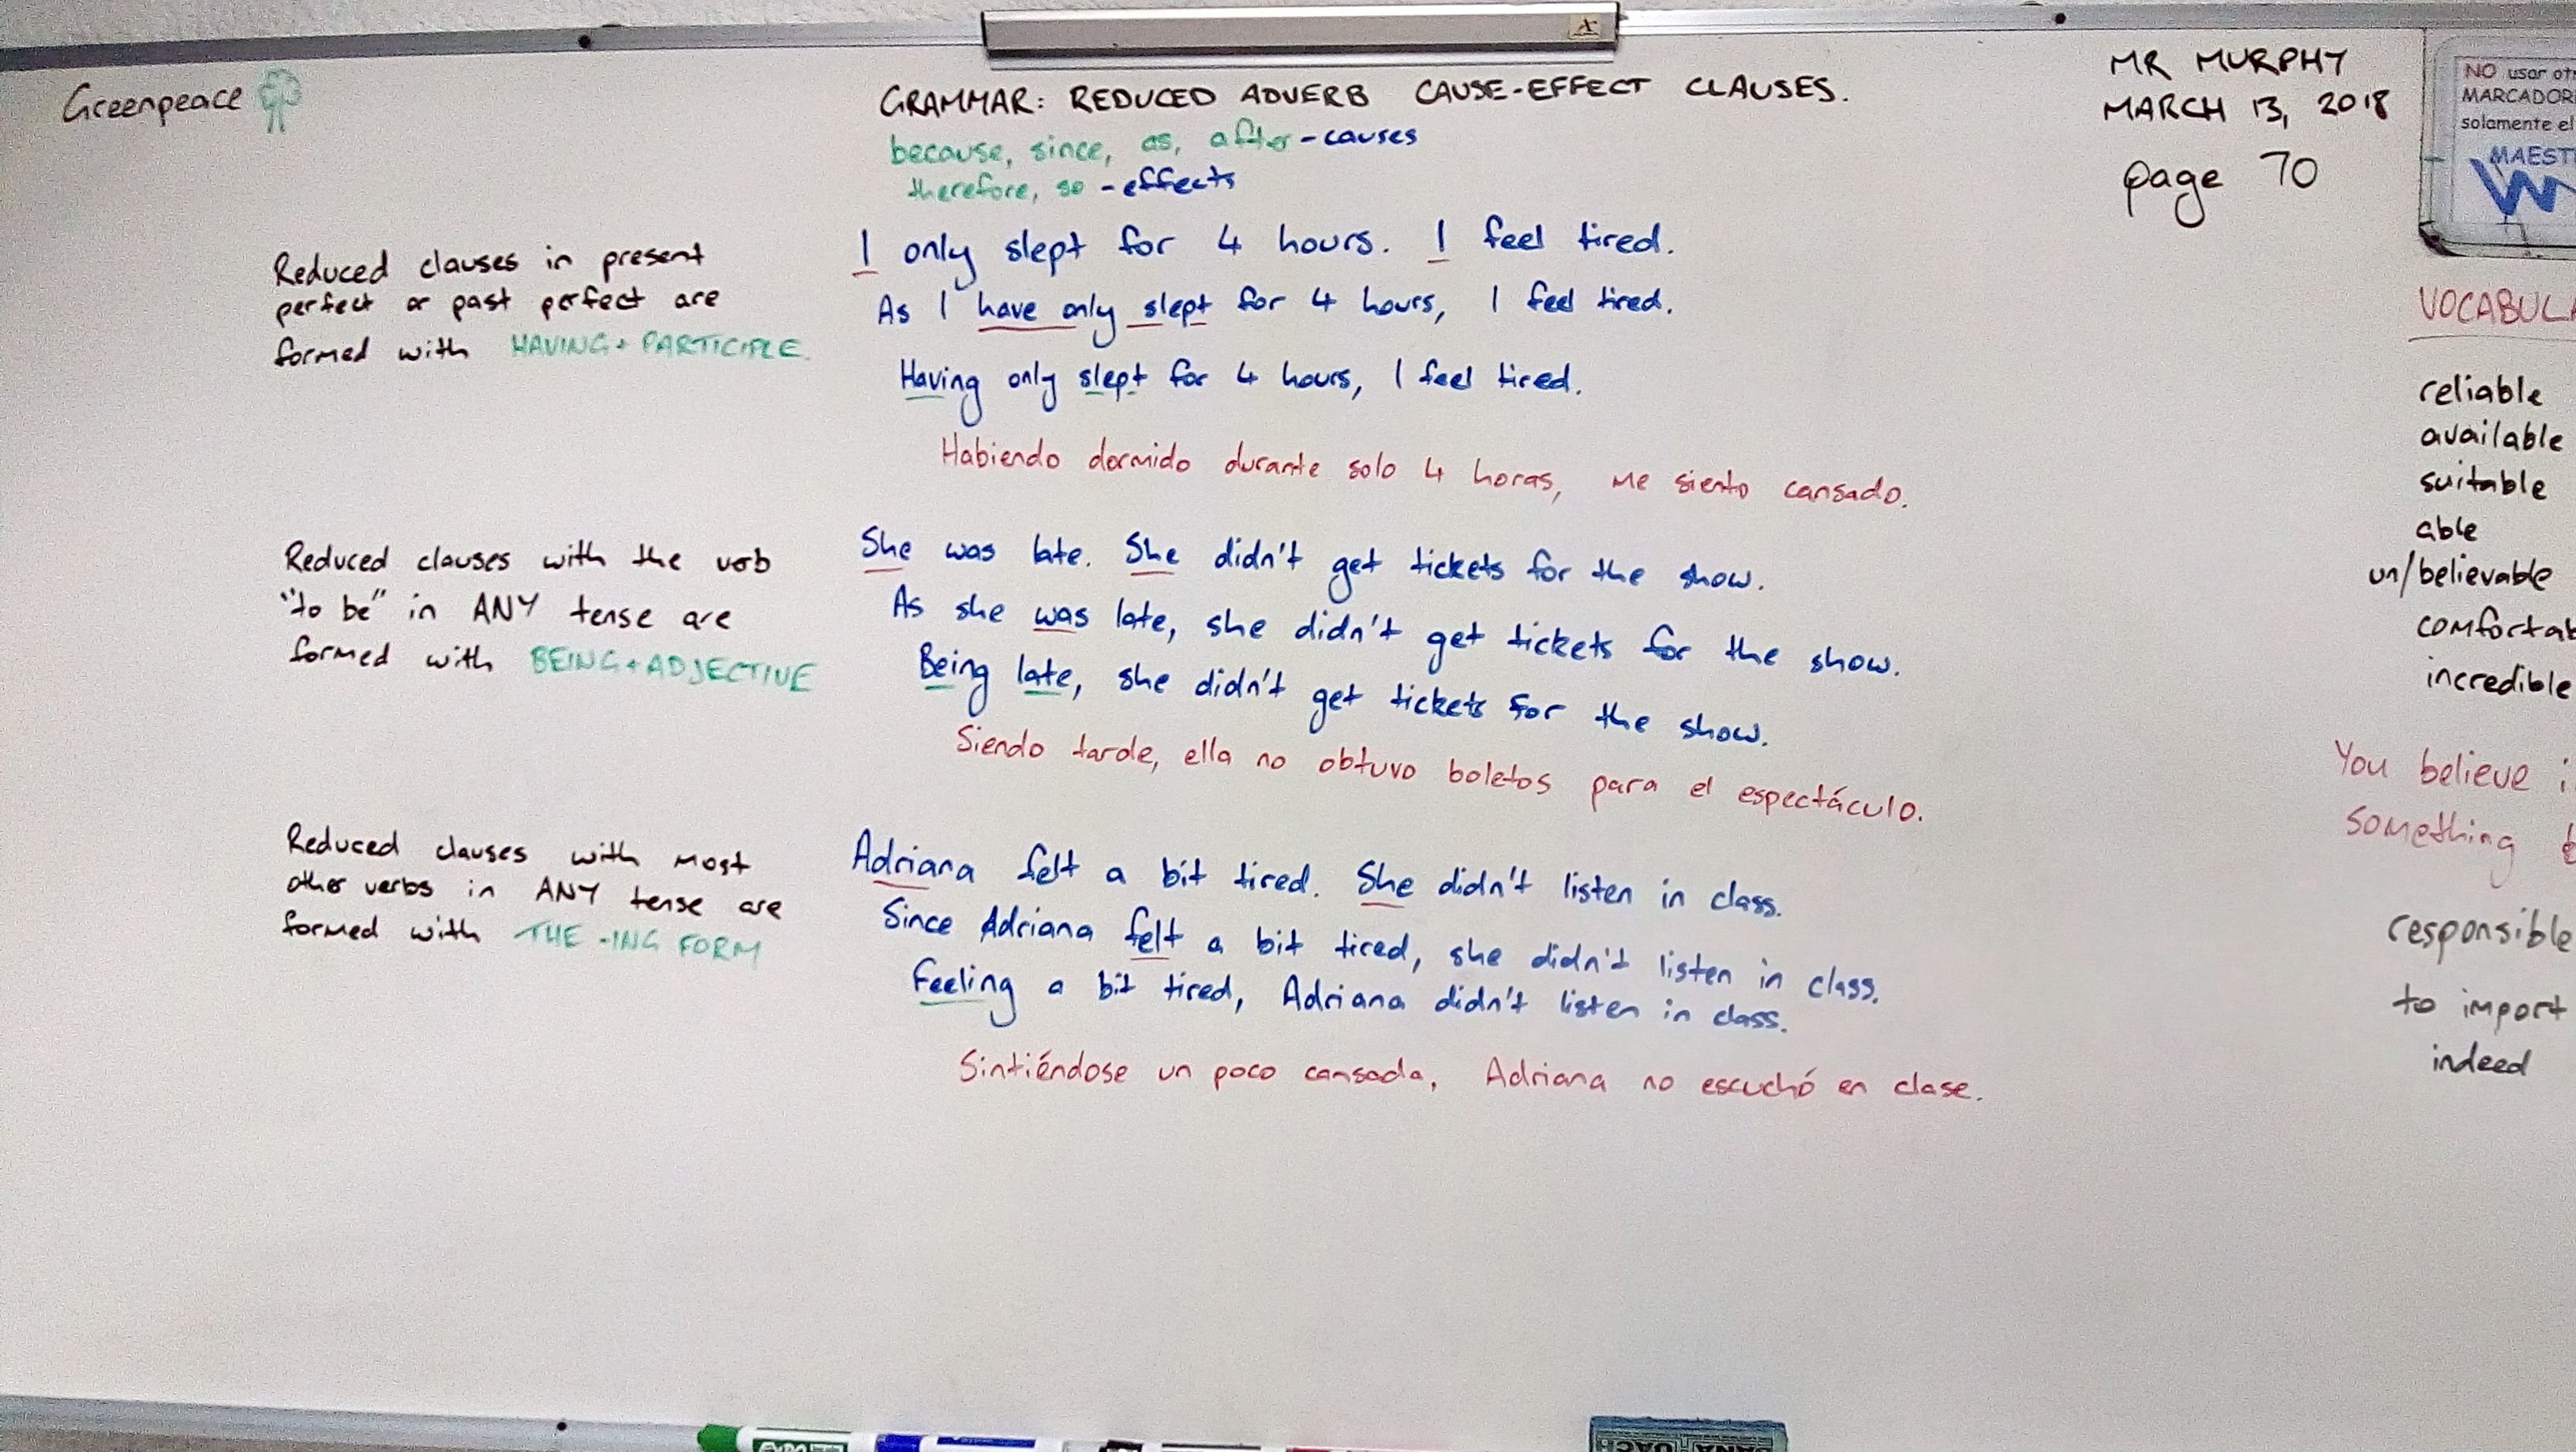 Greenpeace
GRAMMAR: REDUCED ADVERB CAUSE-EFFECT CLAUSES.
because, since, as, after - causes
therefore, so - effects
MR MURPHY
MARCH 13, 2018
page 70
NO usar
solamente el
Reduced clauses in present
perfect or past perfect are
formed with HAVING + PARTICIPLE.
I only slept for 4 hours. I feel tired.
As I have only slept for 4 hours, I feel tired.
Having only slept for 4 hours, I feel tired.
Habiendo dormido durante solo 4 horas, me siento cansado.
Reduced clauses with the verb
"to be" in ANY tense are
formed with BEING + ADJECTIVE
She was late. She didn't get tickets for the show.
As she was late, she didn't get tickets for the show.
Being late, she didn't get tickets for the show.
Siendo tarde, ella no obtuvo boletos para el espectáculo.
Reduced clauses with most
other verbs in ANY tense are
formed with THE -ING FORM
Adriana felt a bit tired. She didn't listen in class.
Since Adriana felt a bit tired, she didn't listen in class.
Feeling a bit tired, Adriana didn't listen in class.
Sintiéndose un poco cansada, Adriana no escuchó en clase.
reliable
available
suitable
able
un/believable
incredible
You believe
something
responsible
to import
indeed
EXPO